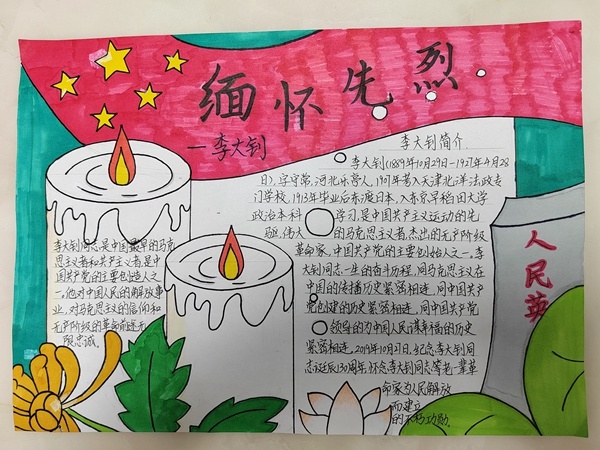 缅怀先烈
—李大钊
李大钊简介
李大钊(1889年10月29日-1927年4月28
日),字守常,河北乐亭人,1907年考入天津北洋法政专
门学校,1913年毕业后东渡日本,入东京早稻田大学
政治本科学习,是中国共产主义运动的先
驱,伟大的马克思主义者,杰出的无产阶级
革命家,中国共产党的主要创始人之一,李
大钊同志一生的奋斗历程,同马克思主义在
中国的传播历史紧密相连,同中国共产
党创建的历史紧密相连,同中国共产党
领导的为中国人民谋幸福的历史
紧密相连,2019年10月27日,纪念李大钊同
志诞辰130周年,怀念李大钊同志等老一辈革
命家为人民解放
而建立
的不朽功勋。
李大钊同志是中国最早的马克
思主义者和共产主义者,是中
国共产党的主要创始人之
一,他对中国人民的解放事
业,对马克思主义的信仰和
无产阶级的革命前途无
限忠诚。
人民英